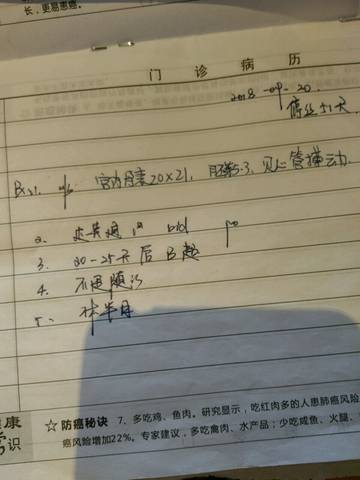 长，更易患癌。
门 诊 病 历
2018-09-20
停经51天
B超: 宫内月囊20×21, 胚芽5.3, 见心管搏动.
2.
3. 20-25天后B超
4. 不适随诊
5. 休半月
健康
☆ 防癌秘诀 7、多吃鸡、鱼肉。研究显示，吃红肉多的人患肺癌风险
常识 癌风险增加22%。专家建议，多吃禽肉、水产品；少吃咸鱼、火腿、